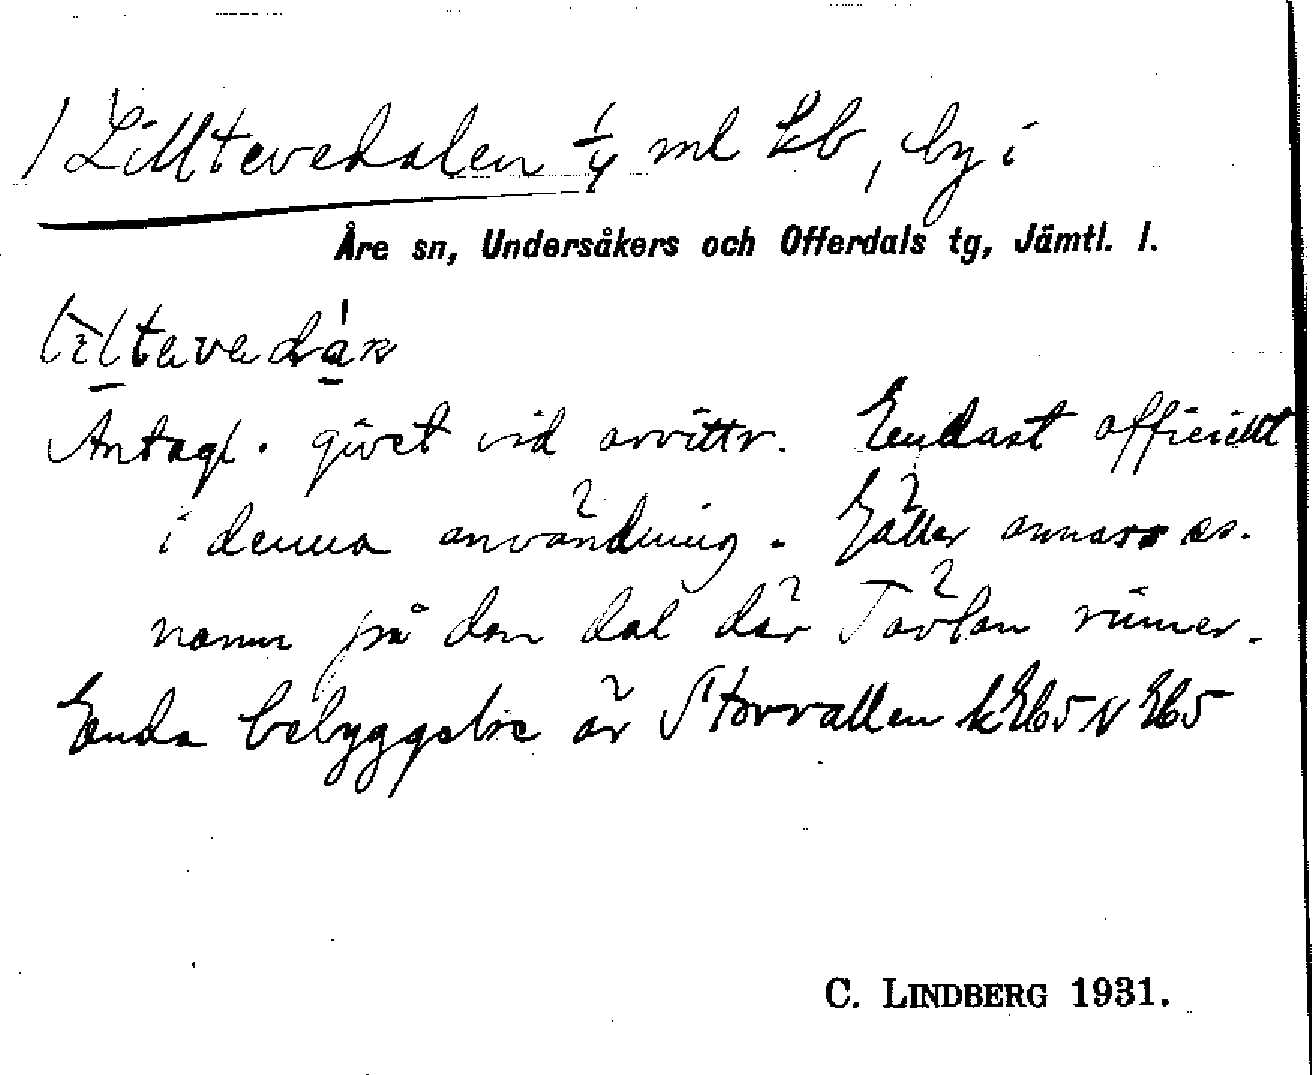 1 Lilltevedalen 1/4 ml kb, by i
Åre sn, Undersåkers och Offerdals tg, Jämtl. l.
liltevedàn
Antagl. givet vid avvittr. Endast officiellt
i denna användning. Gäller annars ss.
namn på den dal där Tävlan rinner.
Enda bebyggelse är Storvallen
C. LINDBERG 1931.